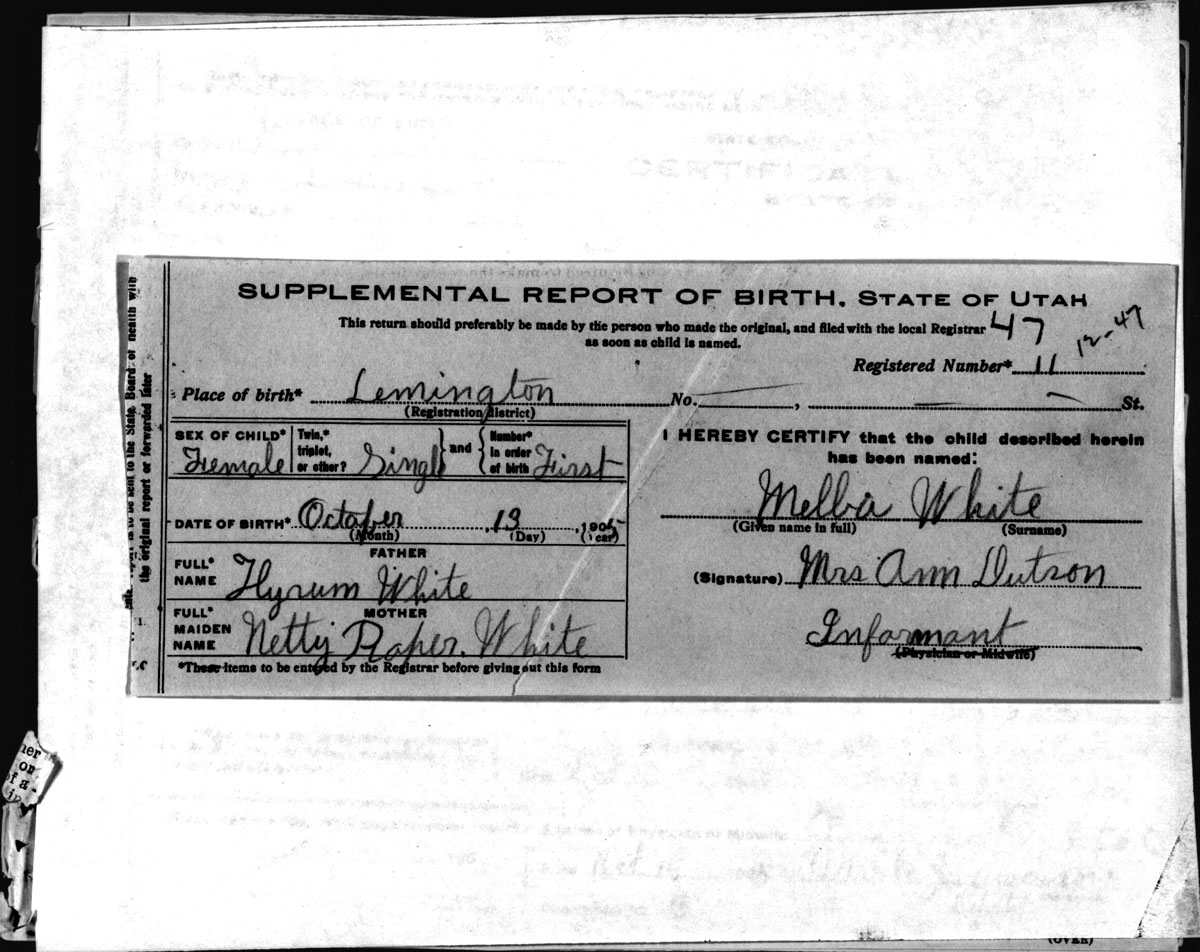 SUPPLEMENTAL REPORT OF BIRTH, STATE OF UTAH
This return should preferably be made by the person who made the original, and filed with the local Registrar
as soon as child is named.
47
12-47
Registered Number* 11
Place of birth* Lemington No. , St.
(Registration district)
SEX OF CHILD* Female
Twin,* triplet, or other? Single
and
Number* in order of birth First
DATE OF BIRTH* October 13, 1905
(Month) (Day) (Year)
FATHER
FULL* NAME Hyrum White
MOTHER
FULL* MAIDEN NAME Netty Raper. White
*These items to be entered by the Registrar before giving out this form
I HEREBY CERTIFY that the child described herein
has been named:
Melba White
(Given name in full) (Surname)
(Signature) Mrs Ann Dutson
Informant
(Physician or Midwife)
to be sent to the State Board of health with
the original report or forwarded later
her
on
of a
(OVER)